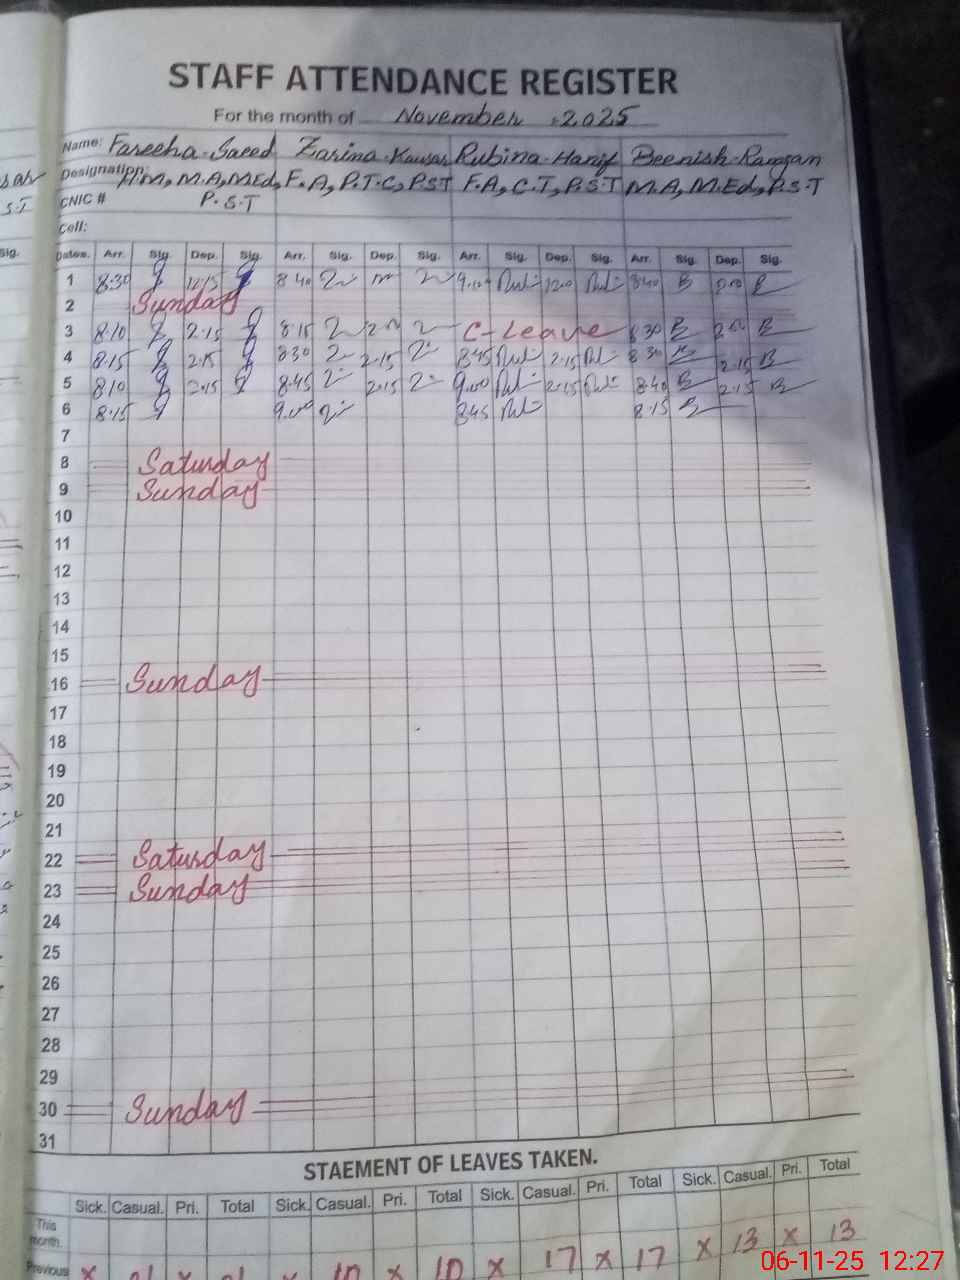 STAFF ATTENDANCE REGISTER
For the month of November 2025
Name: Fareeha Saeed Zarina Kausar Rubina Hanif Beenish Ramzan
Designation: H.M, M.A, M.Ed, F.A, P.T.C, P.S.T F.A, C.T, P.S.T M.A, M.Ed, P.S.T
CNIC # P.S.T
Cell:
Dates. Arr. Sig. Dep. Sig. Arr. Sig. Dep. Sig. Arr. Sig. Dep. Sig. Arr. Sig. Dep. Sig.
1 8:30 12:15 8 40 840
2 Sunday
3 8:10 2:15 8:15 C-Leave 8 30
4 8:15 2:15 830 2:15 845 2:15 8:30 2:15
5 8:10 2:15 8:45 2:15 9:00 2:15 8:40 2:15
6 8:15 9:00 845 8:15
7
8 Saturday
9 Sunday
10
11
12
13
14
15
16 Sunday
17
18
19
20
21
22 Saturday
23 Sunday
24
25
26
27
28
29
30 Sunday
31
STAEMENT OF LEAVES TAKEN.
Sick. Casual. Pri. Total Sick. Casual. Pri. Total Sick. Casual. Pri. Total Sick. Casual. Pri. Total
This month.
Previous x x x 10 x 10 x 17 x 17 x 13 x 13
06-11-25 12:27